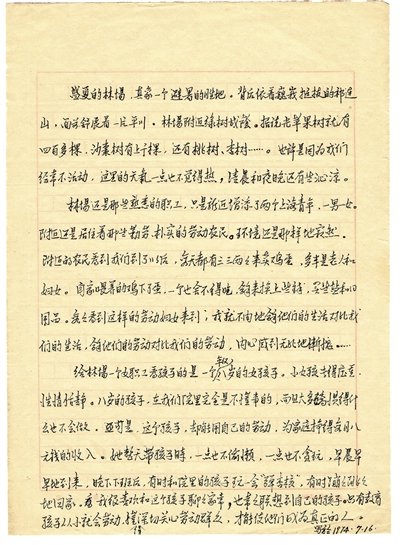 盛夏的林场,真象一个避暑的胜地。背后依着巍峨挺拔的祁连
山,面前舒展着一片平川。林场附近绿树成荫。据说光苹果树就有
四百多棵,沙枣树有上千棵,还有桃树、杏树……。也许是因为我们
经常不活动,这里的天气一点也不觉得热,清晨和夜晚还有些沁凉。
林场还是那些熟悉的职工,只是新近增添了两个上海青年,一男一女。
附近还是居住着那些勤劳、朴实的劳动农民。环境还是那样地寂静。
附近的农民看到我们到了以后,每天都有三三两两来卖鸡蛋,多半是老人和
妇女。自家喂着的鸡下了蛋,一个也舍不得吃,拿来换上些钱,买些盐和日
用品。每每看到这样的劳动妇女来到,我就不由地拿他们的生活对比我
们的生活,拿他们的劳动对比我们的劳动,内心感到无比地惭愧……
给林场一个女职工看孩子的是一个八岁的女孩子。小女孩长得
性情恬静。八岁的孩子,在我们院里完全是不懂事的,而且大多数只觉得什
么也不会做。但是,这个孩子,却能用自己的劳动,为家庭挣得每月八
元钱的收入。她整天带孩子时,一点也不偷懒,一点也不贪玩,早晨早
早地到来,晚上下班后,有时和院里的孩子玩一会
地回家。我很喜欢和这个孩子聊聊家常,也常常联想到自己的孩子。只有教育
孩子从小社会劳动,懂深切关心劳动群众,才能使他们成为真正的人。
1974.7.16.